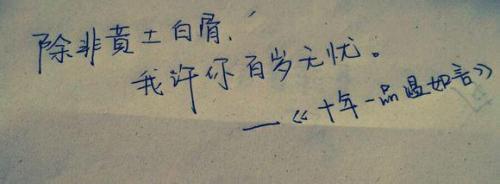 除非黄土白骨,
我许你百岁无忧。
—《十年一品温如言》